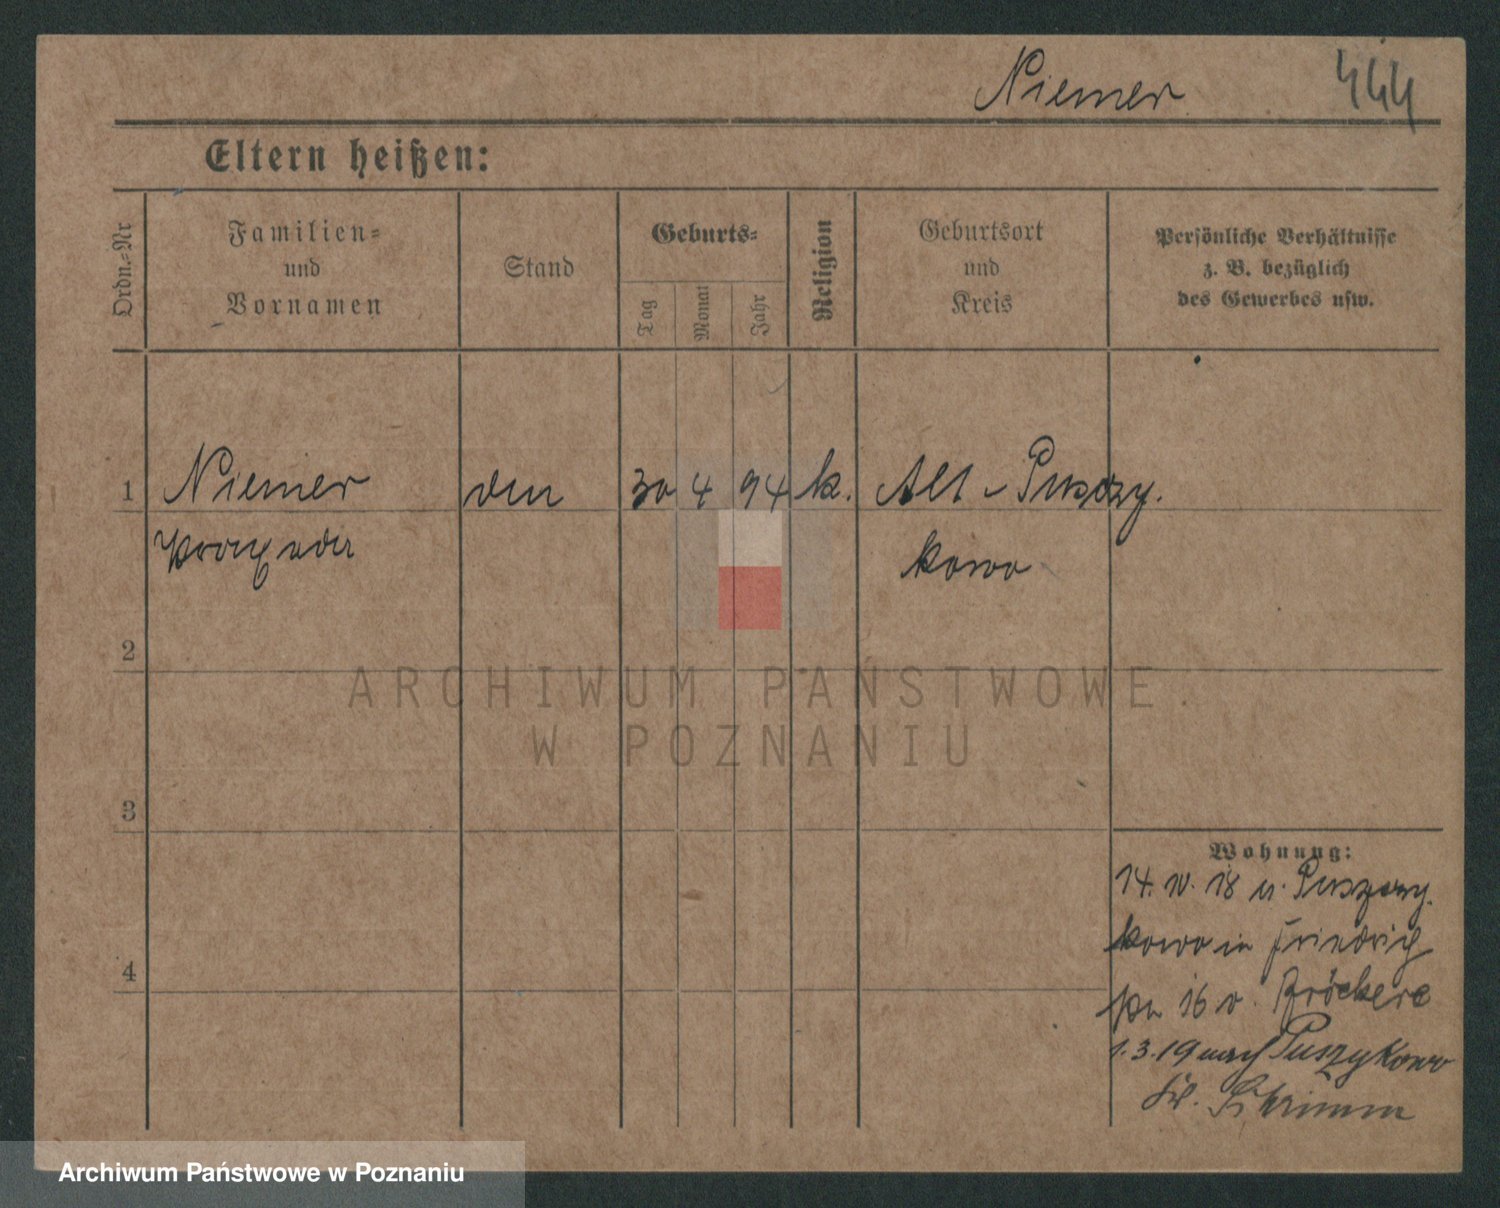 Niemer 444
Eltern heißen:
Ordn.-Nr
Familien-
und
Vornamen
Stand
Geburts-
Tag
Monat
Jahr
Religion
Geburtsort
und
Kreis
Persönliche Verhältnisse
z. B. bezüglich
des Gewerbes usw.
1 Niemer 30 4 94 k. Alt-Pusczy.
kowo
2
3
4
Wohnung:
14. 10. 18 v.
kowo in Friedrich
16 v.
1. 3. 19 nach Puszykowo
Schrimm
ARCHIWUM PAŃSTWOWE
W POZNANIU
Archiwum Państwowe w Poznaniu